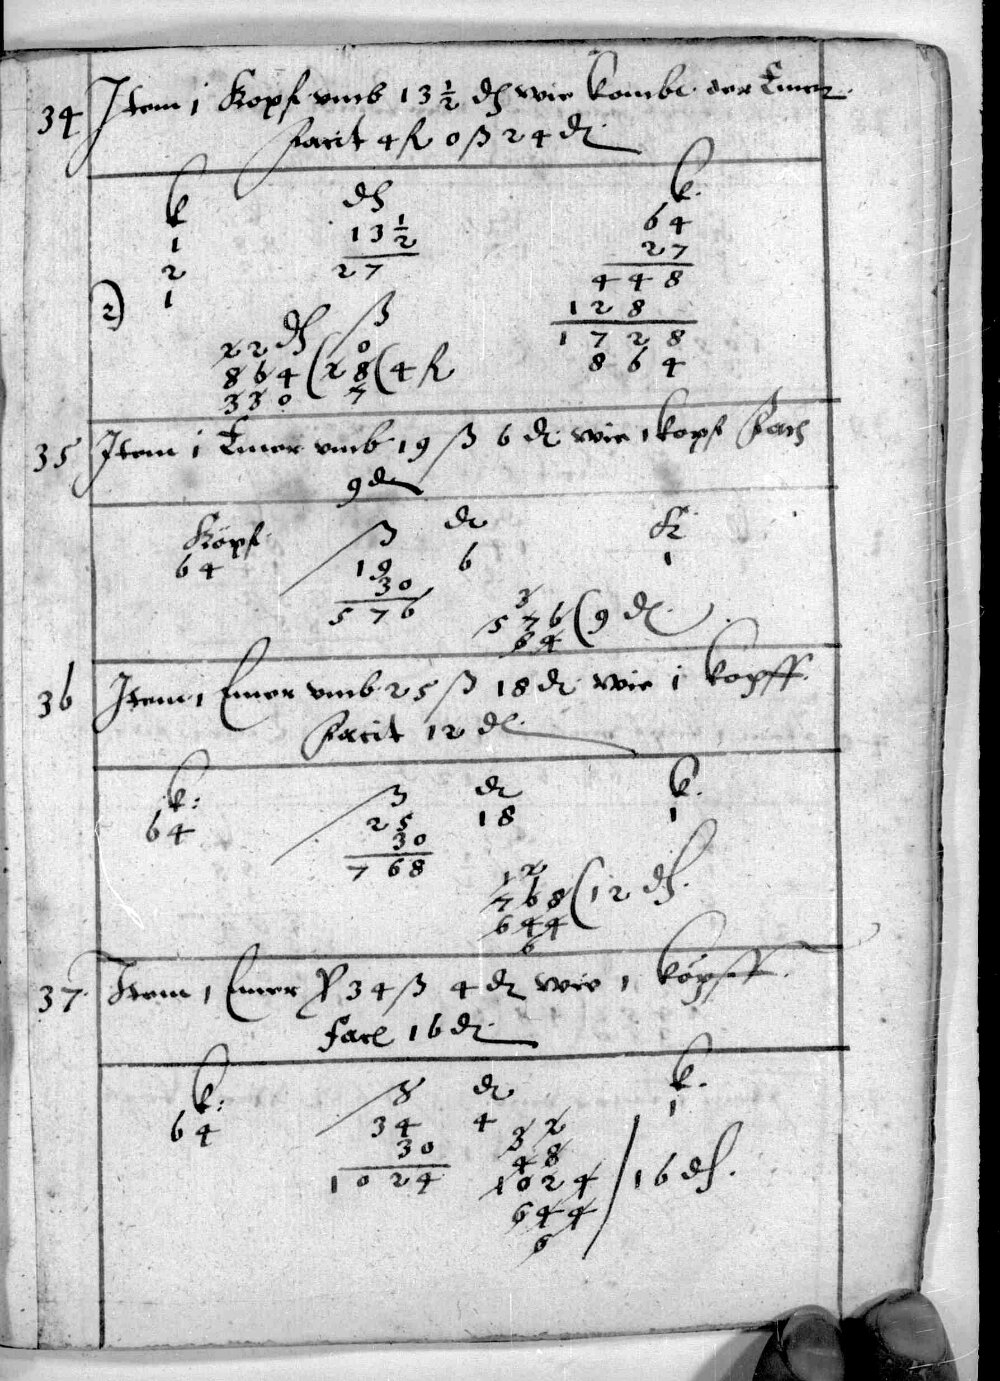 34 Item 1 Kopf vmb 13 1/2 ₰ wie kombt der Emer
Facit 4 fl 0 ß 24 ₰
k ₰ k.
1 13 1/2 64
2 27 27
2) 1 448
128
1728
864
₰ ß
22 0
864 ( 28 ( 4 fl
330 7
35 Item 1 Emer vmb 19 ß 6 ₰ wie 1 kopf Fach
9 ₰
Köpf ß ₰ K
64 19 6 1
30
576
3
576 ( 9 ₰
64
36 Item 1 Emer vmb 25 ß 18 ₰ wie 1 kopff.
Facit 12 ₰
k: ß ₰ k.
64 25 18 1
30
768
12
768 ( 12 ₰.
644
6
37. Item 1 Emer P 34 ß 4 ₰ wie 1 köpff.
Facl 16 ₰
k: ß ₰ k.
64 34 4 1
30
1024
32
48
1024 / 16 ₰.
644
6